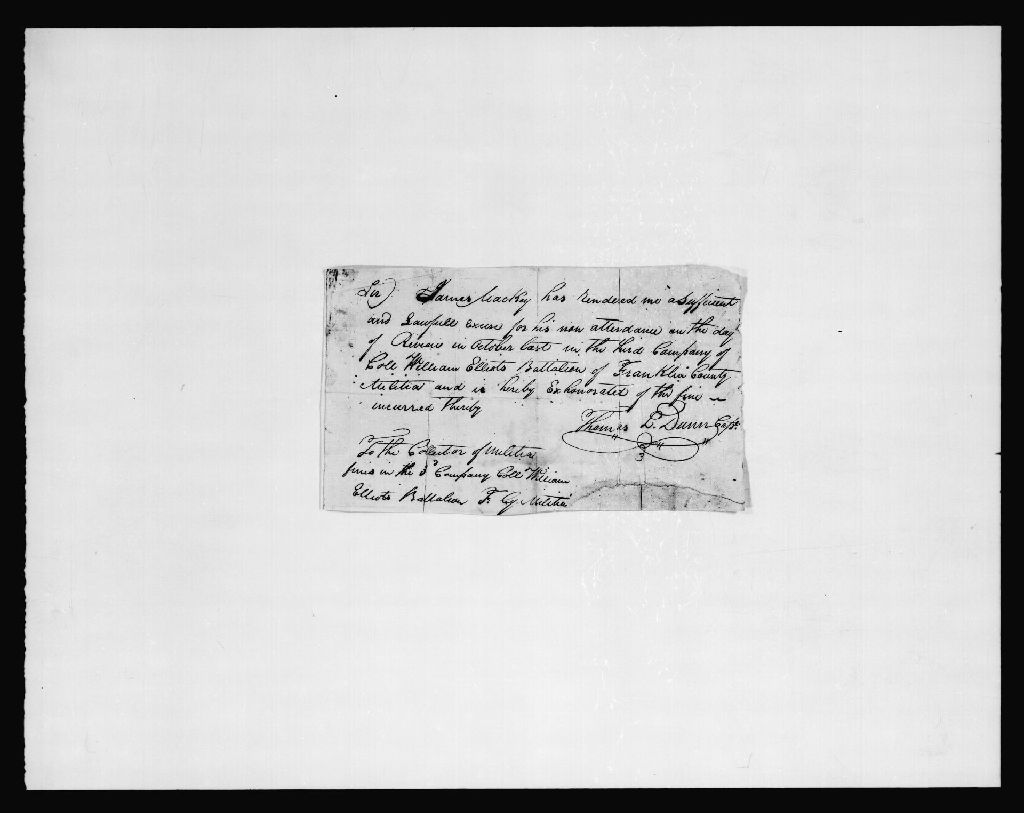 Sir) James Mackey has rendered me a Sufficient
and Lawfull Excuse for his non attendance on the day
of Review in October last in the third Company of
Coll William Elliots Battalion of Franklin County
Militia and is hereby Exhonorated of the fine
incurred thereby
Thomas L. Dunn Capt.
To the Colector of Militia
fines in the 3d Company Coll William
Elliots Battalion F. Cy Militia